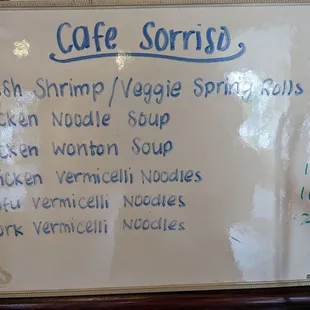 Cafe Sorriso
sh Shrimp/Veggie Spring Rolls
cken Noodle Soup
cken Wonton Soup
icken Vermicelli Noodles
fu Vermicelli Noodles
ork Vermicelli Noodles